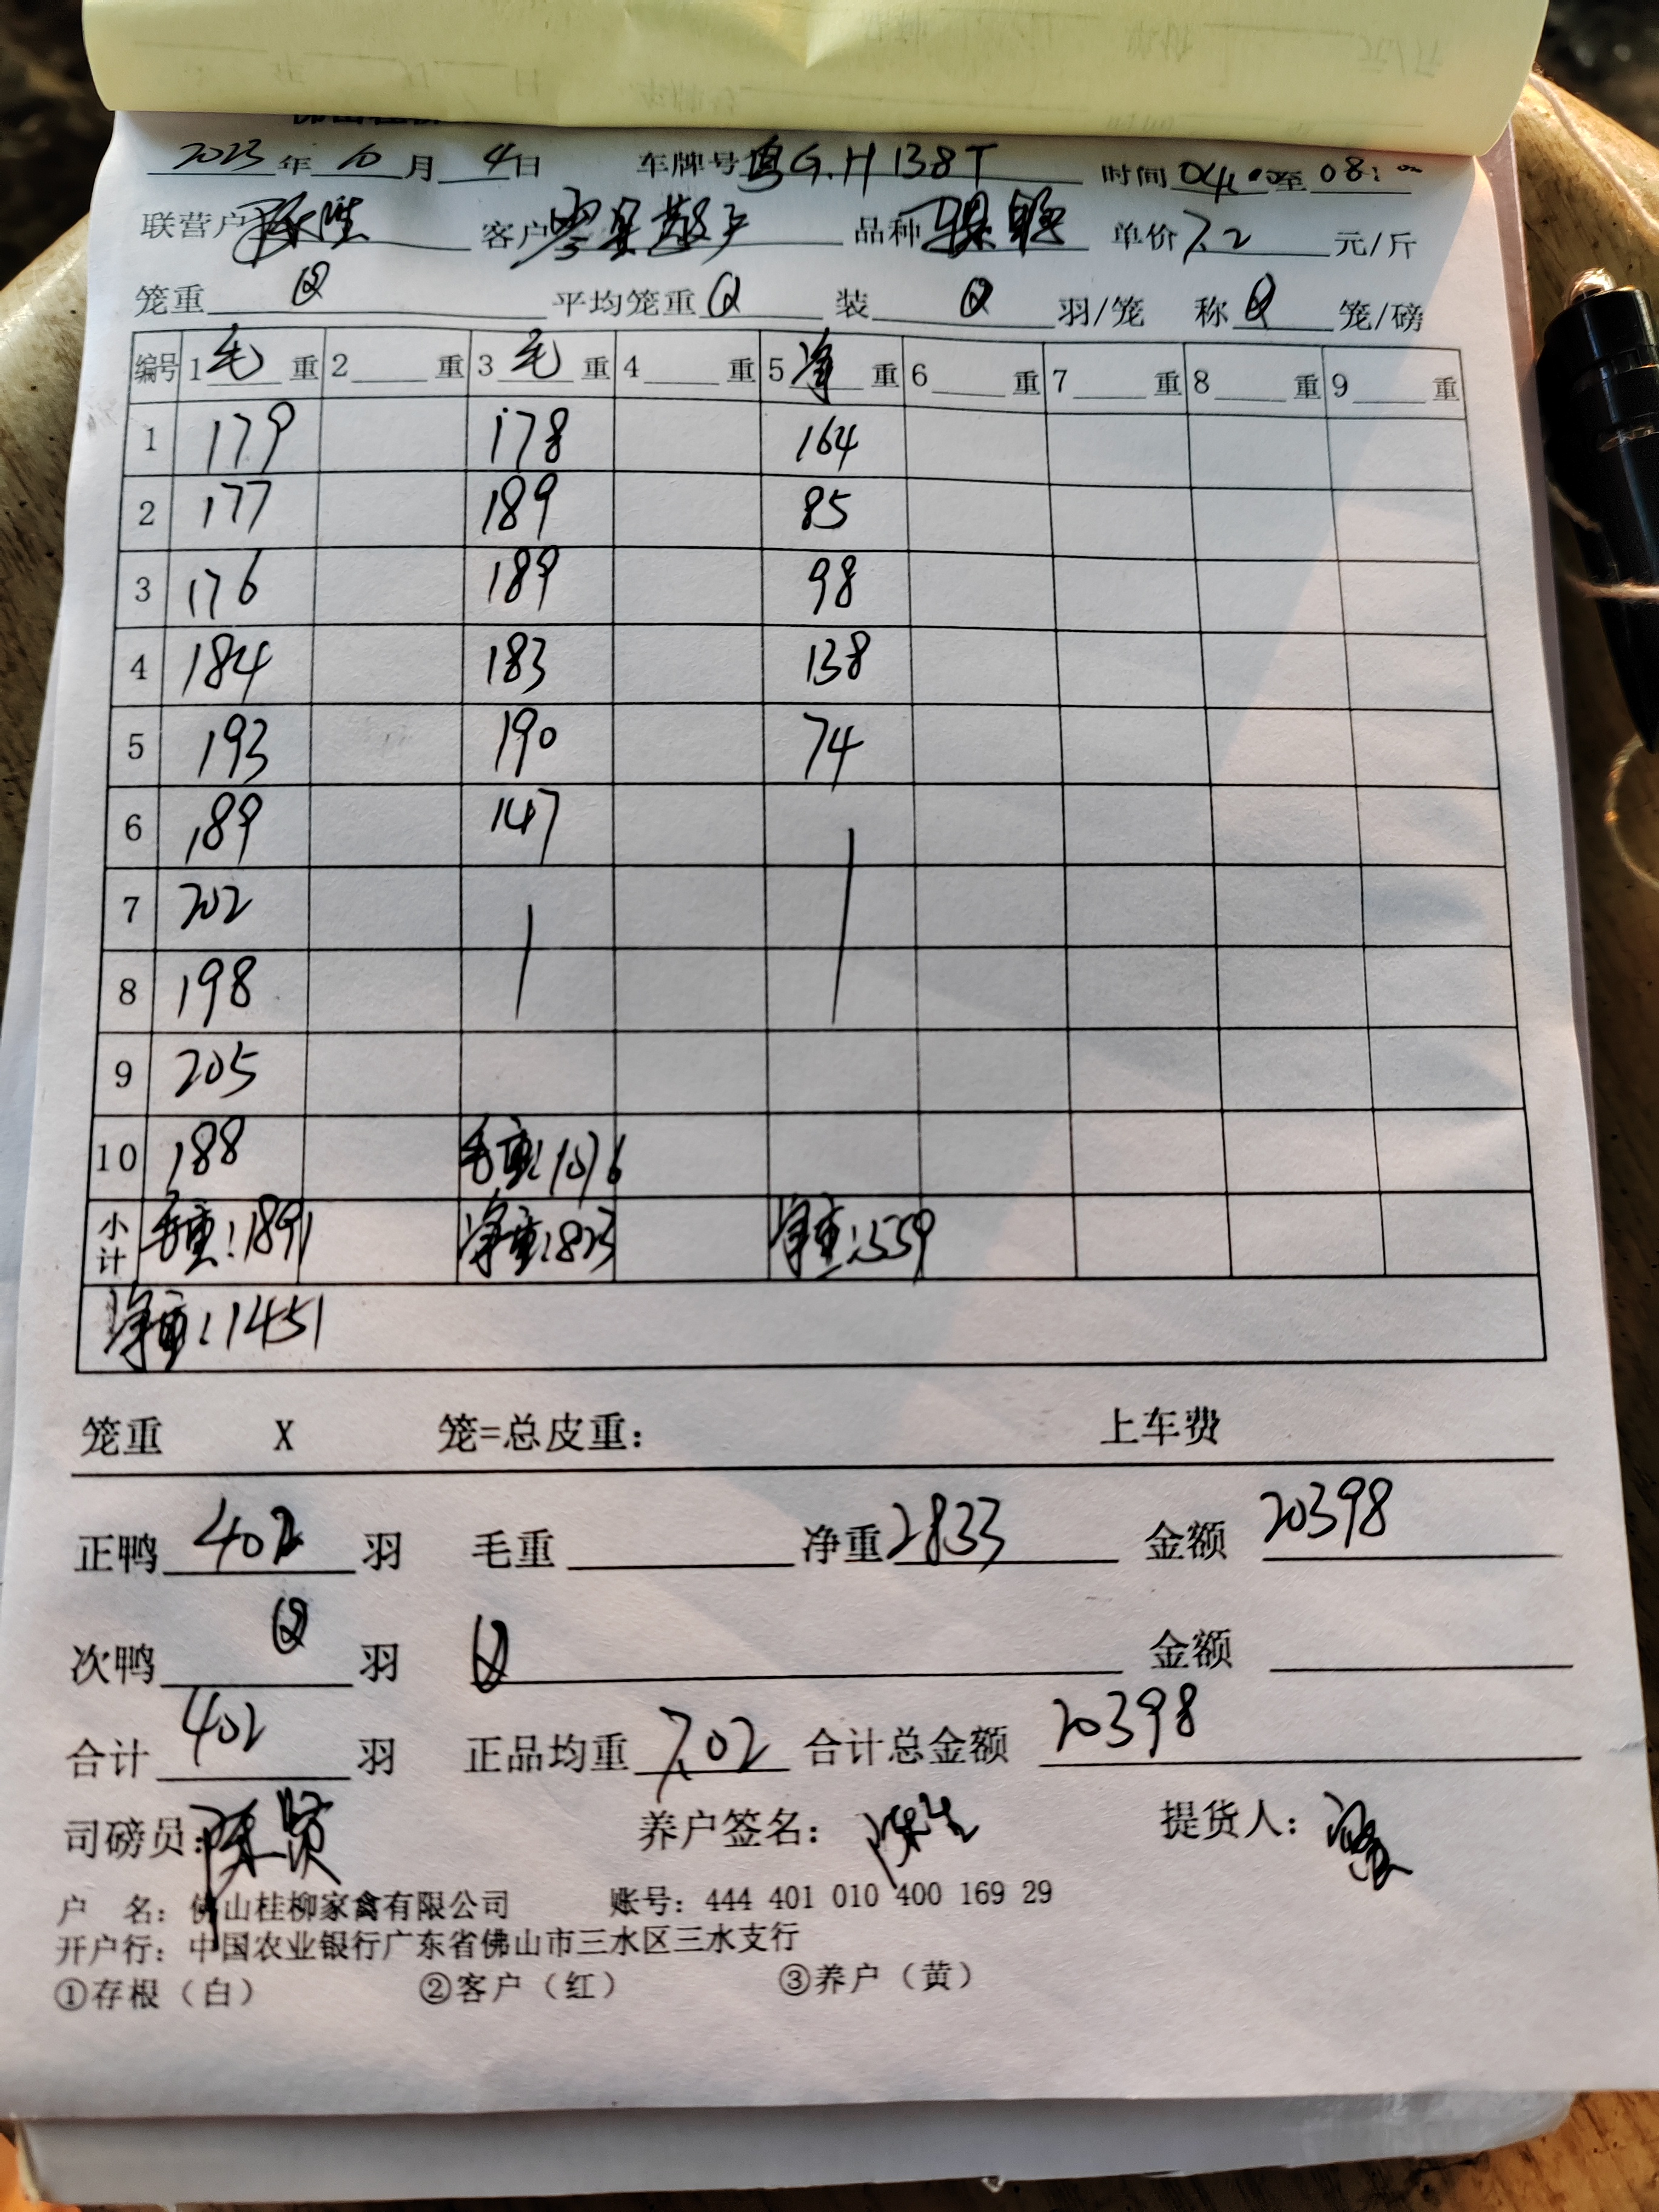 2023年10月4日 车牌号粤G.H138T 时间04:00至08:00
联营户 客户 散户 品种 单价7.2元/斤
笼重 平均笼重 装 羽/笼 称 笼/磅
编号 1毛重 2重 3毛重 4重 5净重 6重 7重 8重 9重
1 179 178 164
2 177 189 85
3 176 189 98
4 184 183 138
5 193 190 74
6 189 147
7 202
8 198
9 205
10 188 毛重:1076
小计 毛重:1891 净重:823 净重:559
净重:1451
笼重 X 笼=总皮重: 上车费
正鸭402羽 毛重 净重2833 金额20398
次鸭 羽 金额
合计402羽 正品均重7.02 合计总金额20398
司磅员: 养户签名: 提货人:
户 名: 佛山桂柳家禽有限公司 账号: 444 401 010 400 169 29
开户行: 中国农业银行广东省佛山市三水区三水支行
①存根(白) ②客户(红) ③养户(黄)